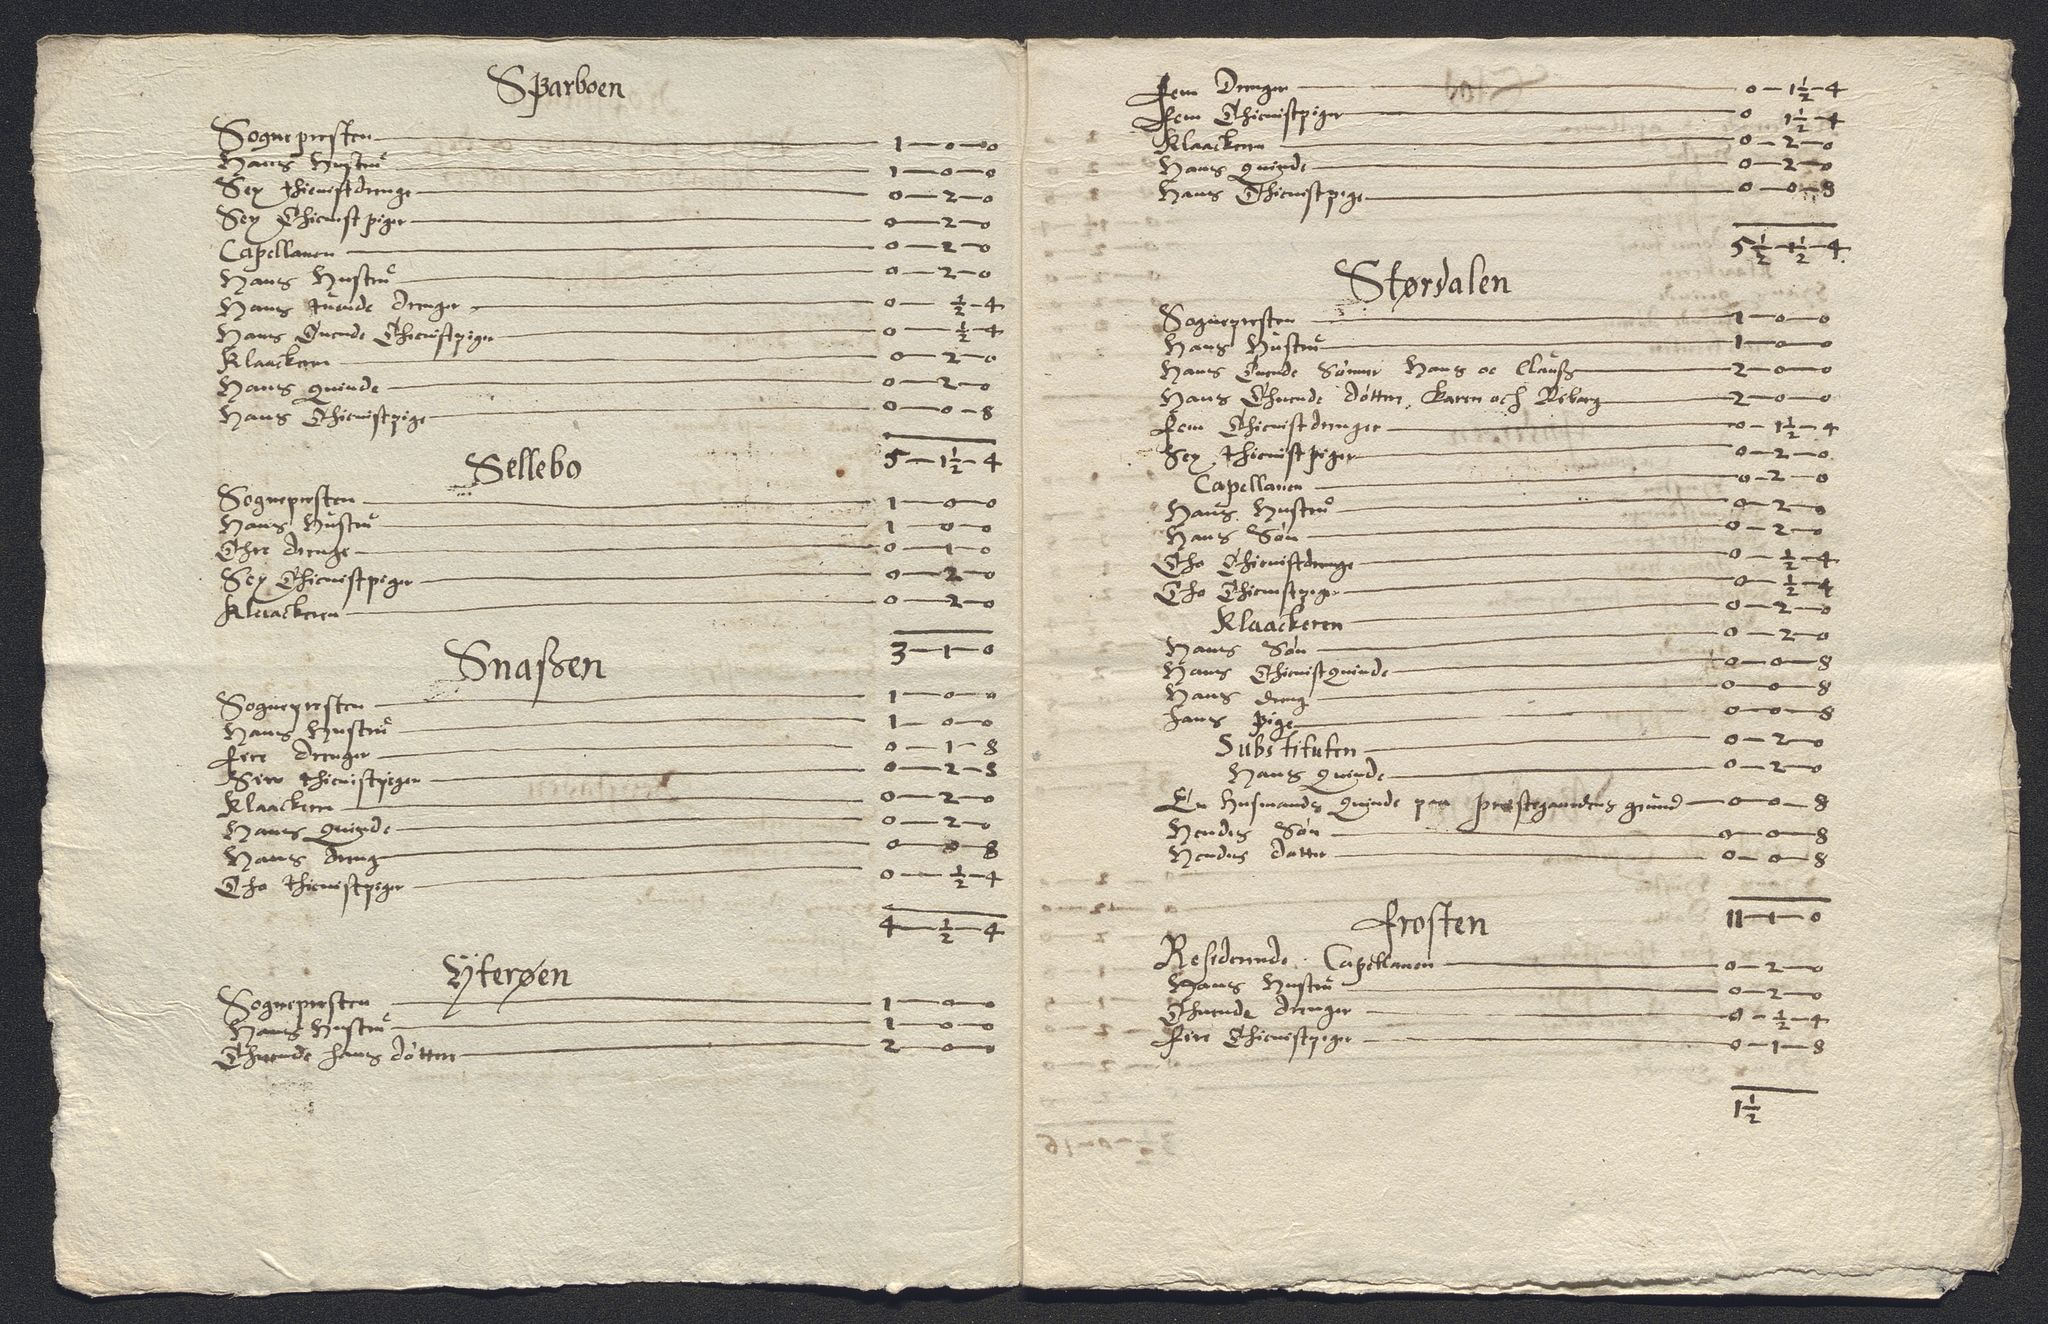 Sparboen
Sognepresten — 1 — 0 — 0
Hans Hustru — 1 — 0 — 0
Sex thienistdrenge — 0 — 2 — 0
Sex Thienist piger — 0 — 2 — 0
Capellanen — 0 — 2 — 0
Hans Hustru — 0 — 2 — 0
Hans tuende drenger — 0 — ½ — 4
Hans Tuende Thienistpiger — 0 — ½ — 4
Klaackeren — 0 — 2 — 0
Hans quinde — 0 — 2 — 0
Hans Thienistpige — 0 — 0 — 8
5 — 1½ — 4
Sellebo
Sognepresten — 1 — 0 — 0
Hans Hustru — 1 — 0 — 0
Thre drenge — 0 — 1 — 0
Sex Thienistpiger — 0 — 2 — 0
Klaackeren — 0 — 2 — 0
3 — 1 — 0
Snaßen
Sognepresten — 1 — 0 — 0
Hans Hustru — 1 — 0 — 0
fire drenger — 0 — 1 — 8
Siw thienistpiger — 0 — 2 — 8
Klaackeren — 0 — 2 — 0
Hans Quinde — 0 — 2 — 0
Hans dreng — 0 — 0 — 8
Tho thienistpiger — 0 — ½ — 4
4 — ½ — 4
Ÿterøen
Sognepresten — 1 — 0 — 0
Hans Hustru — 1 — 0 — 0
Thuende hans døttre — 2 — 0 — 0
fem Drenger — 0 — 1½ — 4
fem Thienistpiger — 0 1½ — 4
Klaackeren — 0 — 2 — 0
Hans quinde — 0 — 2 — 0
Hans Thienistpige — 0 — 0 — 8
5½ — 1½ — 4
Størdalen
Sognepresten — 1 — 0 — 0
Hans Hustru — 1 — 0 — 0
Hans Tuende Sønner Hans oc Clauß — 2 — 0 — 0
Hans Thuende døttre, Karen och — 2 — 0 — 0
fem Thienistdrenger — 0 — 1½ — 4
Sex thienist piger — 0 — 2 — 0
Capellanen — 0 — 2 — 0
Hans Hustru — 0 — 2 — 0
Hans Søn — 0 — 2 — 0
Tho Thienistdrenge — 0 — ½ — 4
Tho Thienistpiger — 0 — ½ — 4
Klaackeren — 0 — 2 — 0
Hans Søn — 0 — 2 — 0
Hans Thienistquinde — 0 — 0 — 8
Hans dreng — 0 — 0 — 8
hans pige — 0 — 0 — 8
Substituten — 0 — 2 — 0
Hans quinde — 0 — 2 — 0
En Husmands Quinde paa prestegaardens grund — 0 — 0 — 8
Hendis Søn — 0 — 0 — 8
Hendis datter — 0 — 0 — 8
11 — 1 — 0
frosten
Residerende Capellanen — 0 — 2 — 0
Hans Hustru — 0 — 2 — 0
Thuende drenger — 0 — ½ — 4
fire Thienistpiger — 0 — 1 — 8
1½